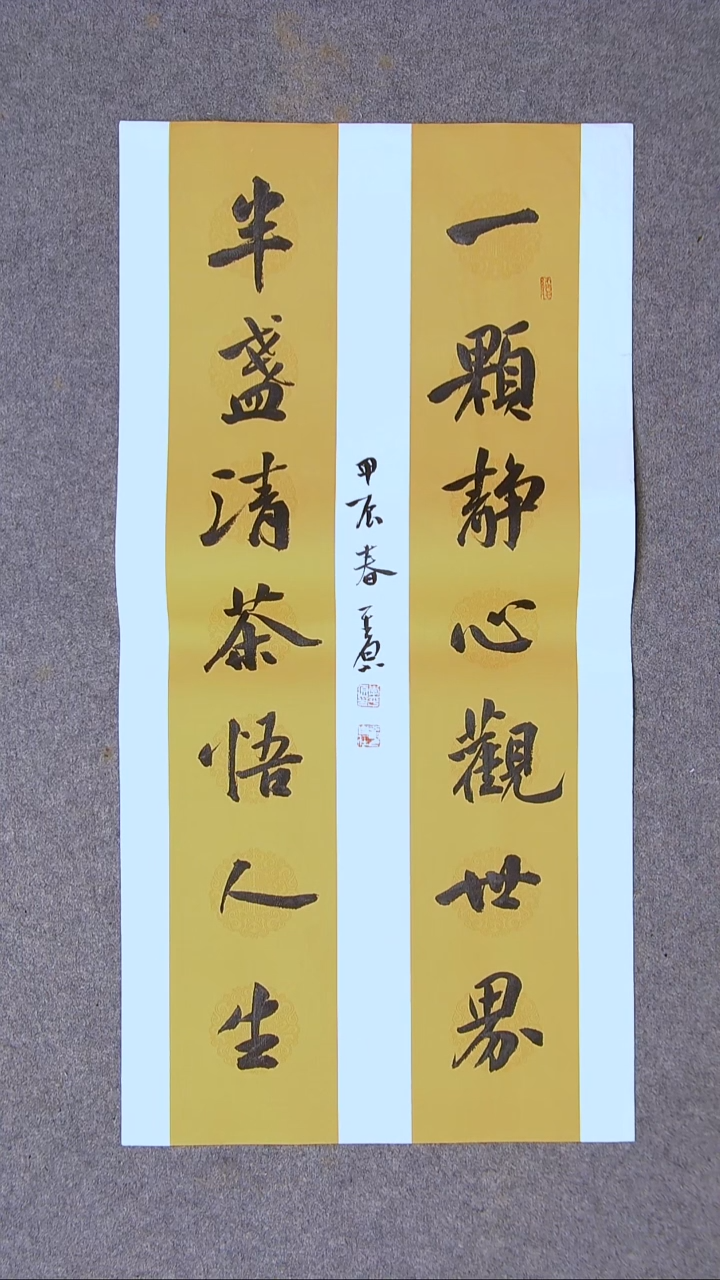 一顆静心觀世界
半盞清茶悟人生
甲辰春